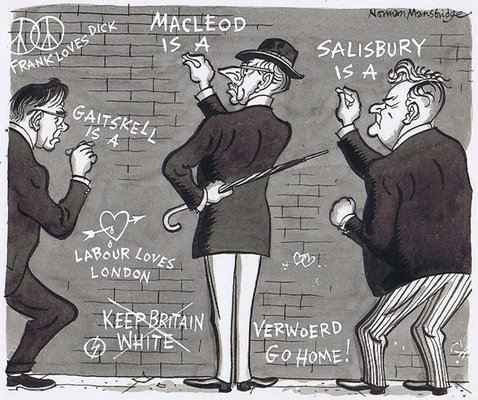 Norman Mansbridge
FRANK LOVES DICK
MACLEOD
IS A
SALISBURY
IS A
GAITSKELL
IS A
LABOUR LOVES
LONDON
KEEP BRITAIN
WHITE
VERWOERD
GO HOME!